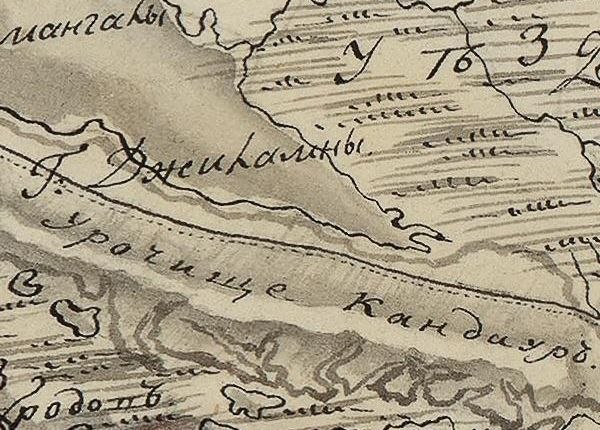 мангаћы
У Ѣ З
Г. Джићамны
Урочище Кандауръ.
родопъ